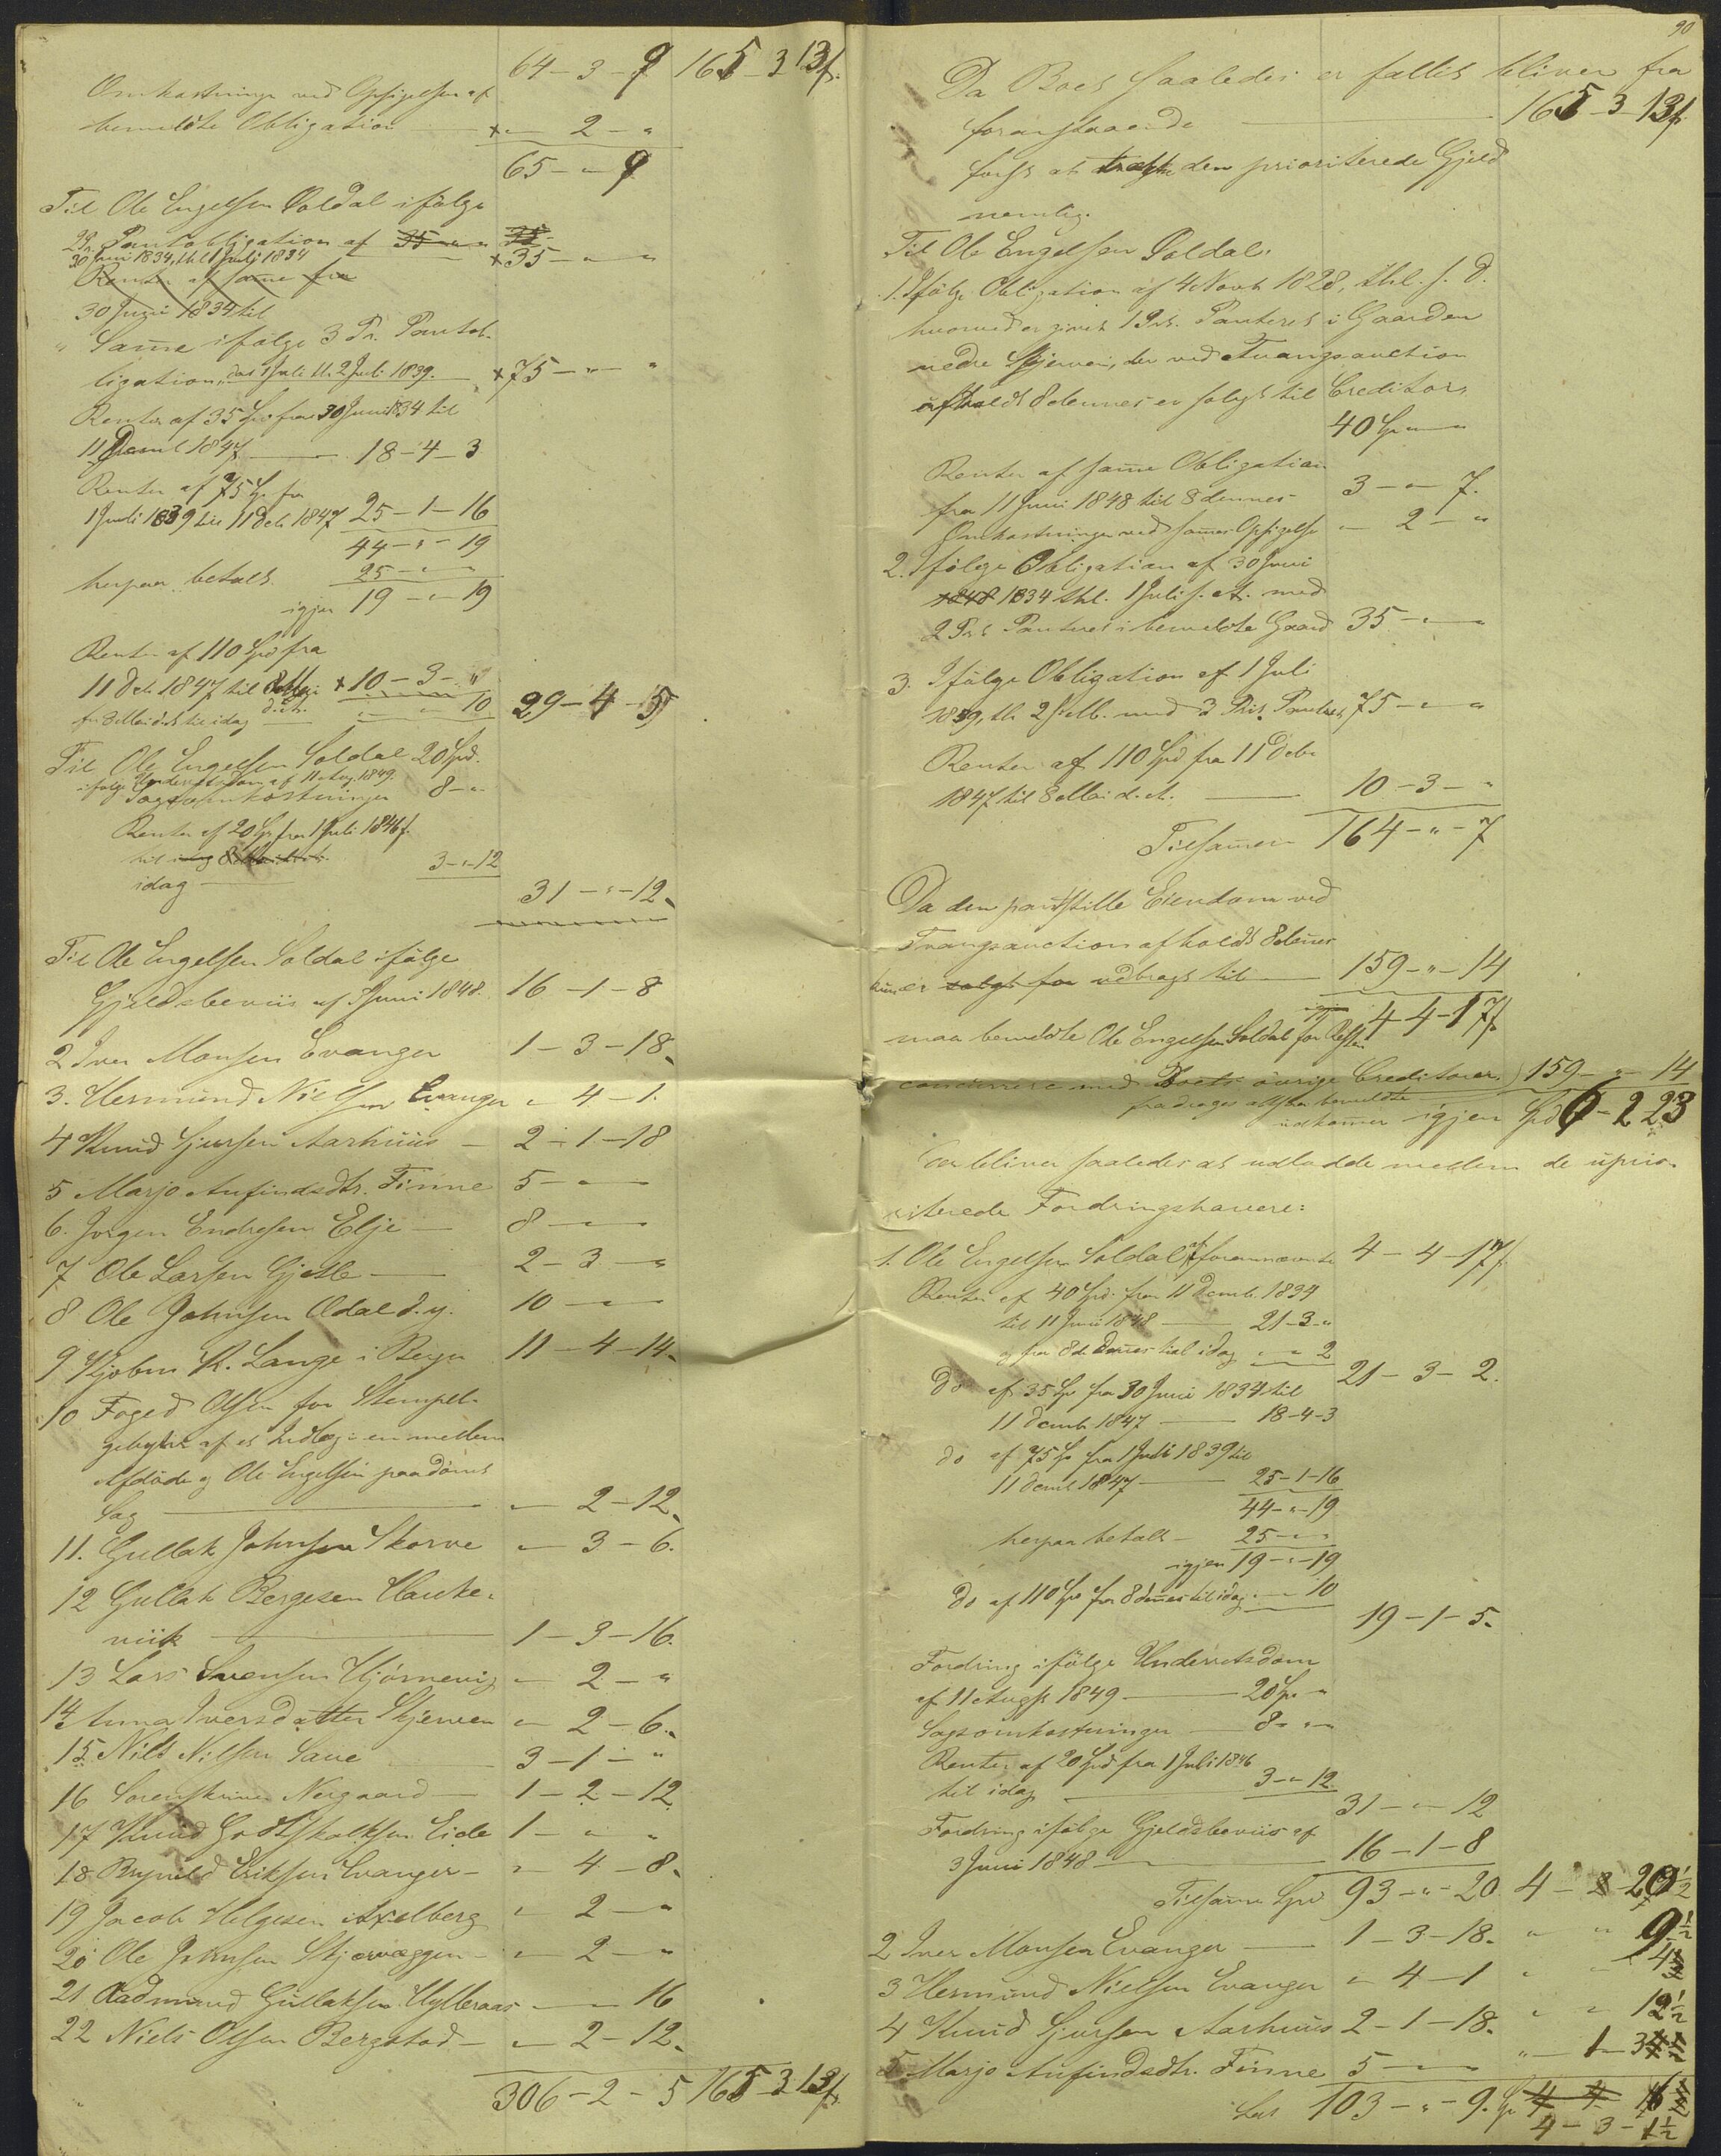 64 – 3 – 9 165 – 3 13f.
Omkostninger ved Opsigelsen af
bemeldte Obligation × " 2 – "
65 – " 9
Til Ole Engelsen Soldal ifølge
2 Pr. Pantobligation af 35 – " "
30 Juni 1834, thl. 1 Juli 1834 × 35 – " – "
Renter af samme fra
30 Juni 1834 til
" Samme ifølge 3 Pr. Pantob-
ligation, dat 1 Juli thl. 2 Juli 1839. × 75 – " – "
Renter af 35 Spd fra 30 Juni 1834 til
11 Decmb 1847 18 – 4 – 3
Renter af 75 Sp fra
1 Juli 1839 til 11 Decb 1847 25 – 1 – 16
44 – " – 19
herpaa betalt 25 – " –
igjen 19 – " – 19
Renter af 110 Spd fra
11 Decb 1847 til 8 Mai × 10 – 3 – "
fra 8 Mai d. A. til idag " " 10 29 – 4 – 5
Til Ole Engelsen Soldal 20 Spd.
ifølge Underretsdom af 11 Aug. 1849.
Sagsomkostninger 8 – "
Renter af 20 Spd fra 1 Juli 1846 f.
til
idag 3 – " – 12
31 – " – 12
Til Ole Engelsen Soldal ifølge
Gjeldsbeviis af 3 Juni 1848. 16 – 1 – 8
2 Iver Monsen Evanger 1 – 3 – 18
3. Hermund Nielsen Evanger " 4 – 1.
4 Knud Sjursen Aarhuus – 2 – 1 – 18
5 Marjo Anfindsdtr. Finne 5 – " –
6. Jørgen Endresen Elje 8 – " –
7 Ole Larsen Gjelle 2 – 3 – "
8 Ole Johnsen Odal d. y. 10 – " –
9 Kjøbm K. Lange i Bergn 11 – 4 – 14
10 Foged Olsen for Stempel-
gebyhr af et Indlæg i en mellem
Afdøde og Ole Engelsen paadømt
Sag " 2 – 12
11. Gullak Johnsen Skorve " 3 – 6.
12 Gullak Bergesen Hauke-
viik 1 – 3 – 16.
13 Lars Svensen Hjørnevig " 2 – "
14 Anna Iversdatter Skjerven " 2 – 6
15 Nils Nilsen Saue 3 – 1 – "
16 Sorenskriver Nergaard 1 – 2 – 12
17 Knud Godtskalksen Eide 1 – " "
18 Brynild Eriksen Evanger – " 4 – 8
19 Jacob Helgesen Axelberg " 2 – "
20 Ole Johnsen Skjervæggen – " 2 – "
21 Aadmund Gullaksen Hylleraas " 16
22 Niels Olsen Bergstad – " 2 – 12
306 – 2 – 5 165 – 3 13f.
90
Da Boet saaledes er fallit bliver fra
foranstaaende 165 – 3 – 13f.
først at trække den prioriterede Gjeld
nemlig.
Til Ole Engelsen Soldal.
1. Ifølge Obligation af 4 Novb 1828, thl. s. D.
hvorved er givet 1 Prt. Panteret i Gaarden
nedre Skjerven, der ved Tvangsauction
afholdt 8 dennes er solgt til Creditor,
40 Sp " – "
Renter af samme Obligation
fra 11 Juni 1848 til 8 dennes 3 – " – 7.
Omkostninger ved sammes Opsigelse " 2 – "
2. Ifølge Obligation af 30 Juni
1848 1834 thl. 1 Juli s. A. med
2 Prs Panteret i bemeldte Gaard 35 – " – "
3. Ifølge Obligation af 1 Juli
1839, thl. 2 s. M. med 3 Prs. Panteret 75 – " – "
Renter af 110 Spd fra 11 Decbr
1847 til 8 Mai d. A. 10 – 3 – "
Tilsammen 164 – " – 7
Da den pantstillte Eiendom ved
Tvangsauction afholdt 8 dennes
kun er solgt for udbragt til 159 – " – 14
igjen
maa bemeldte Ole Engelsen Soldal for Resten 4 – 4 – 17f.
concurrere med Boets øvrige Creditorer, 159 – " – 14
fradrages altsaa bemeldte
udkommer igjen Spd 6 – 2 23
Der bliver saaledes at udlodde mellem de uprio-
riterede Fordringshavere:
1. Ole Engelsen Soldal af forannævnte 4 – 4 – 17f.
Renter af 40 Spd. fra 11 Decmb. 1834
til 11 Juni 1848 21 – 3 – "
og fra 8de Dennes til idag " " 2
21 – 3 – 2.
Do af 35 Sp fra 30 Juni 1834 til
11 Decmb 1847 18 – 4 – 3
do af 75 Sp fra 1 Juli 1839 til
11 Decmb 1847 25 – 1 – 16
44 – " – 19
herpaa betalt – 25 – " –
igjen 19 – " – 19
Do af 110 Spd fra 8 dennes til idag " – 10
19 – 1 – 5
Fordring ifølge Underretsdom
af 11 Augst 1849 20 Sp. "
Sagsomkostninger 8 – " –
Renter af 20 Spd fra 1 Juli 1846
til idag 3 – " – 12
31 – " – 12
Fordring ifølge Gjeldsbeviis af
3 Juni 1848 16 – 1 – 8
Tilsamn Spd 93 – " – 20.
2 Iver Monsen Evanger 1 – 3 – 18. " " 9½
3 Hermund Nielsen Evanger " 4 – 1
4 Knud Sjursen Aarhuus 2 – 1 – 18. " " 12½
5 Marjo Anfindsdtr. Finne 5 – " –
Lat 103 – " – 9. Sp
4 – 3 – 1½